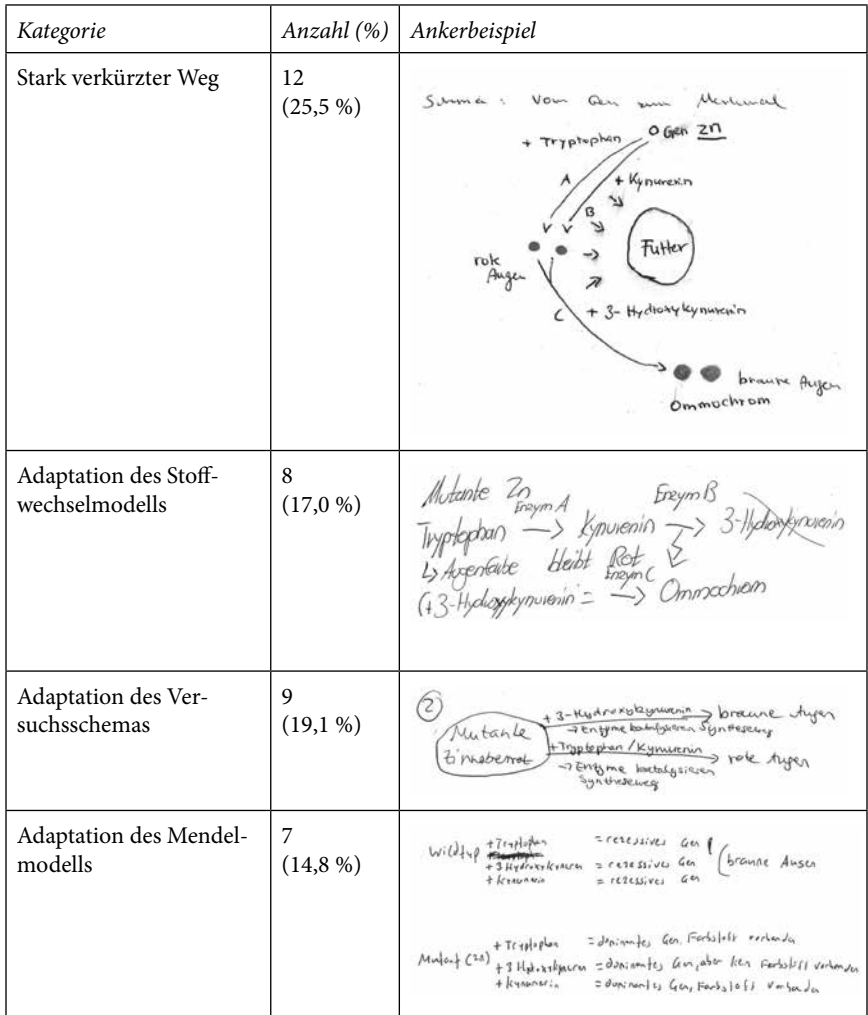 Kategorie Anzahl (%) Ankerbeispiel
Stark verkürzter Weg 12
(25,5 %)
Schema: Vom Gen zum Merkmal
+ Tryptophan O Gen zn
A + Kynurenin
B
Futter
rote
Augen
C + 3-Hydroxykynurenin
braune Augen
Ommochrom
Adaptation des Stoff-
wechselmodells
8
(17,0 %)
Mutante Zn
Enzym A Enzym B
Tryptophan → Kynurenin → 3-Hydroxykynurenin
↳ Augenfarbe bleibt Rot
Enzym C
(+3-Hydroxykynurenin = → Ommochrom
Adaptation des Ver-
suchsschemas
9
(19,1 %)
2
Mutante
Zinnoberrot
+ 3-Hydroxykynurenin → braune Augen
→ Enzyme katalysieren Syntheseweg
+ Tryptophan / Kynurenin → rote Augen
→ Enzyme katalysieren
Syntheseweg
Adaptation des Mendel-
modells
7
(14,8 %)
Wildtyp + Tryptophan = rezessives Gen
+ 3 Hydroxykynuren = rezessives Gen braune Augen
+ Kynurenin = rezessives Gen
Mutant (zn) + Tryptophan = dominantes Gen, Farbstoff vorhanden
+ 3 Hydroxykynuren = dominantes Gen, aber kein Farbstoff vorhanden
+ Kynurenin = dominantes Gen, Farbstoff vorhanden